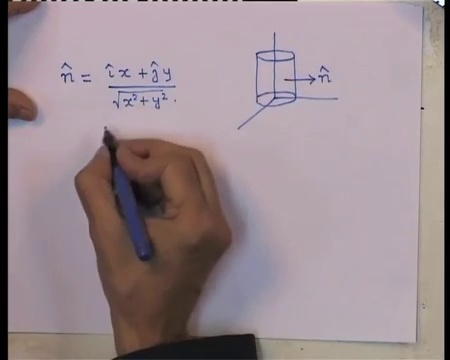 n̂ = îx + ĵy / √x² + y².
n̂